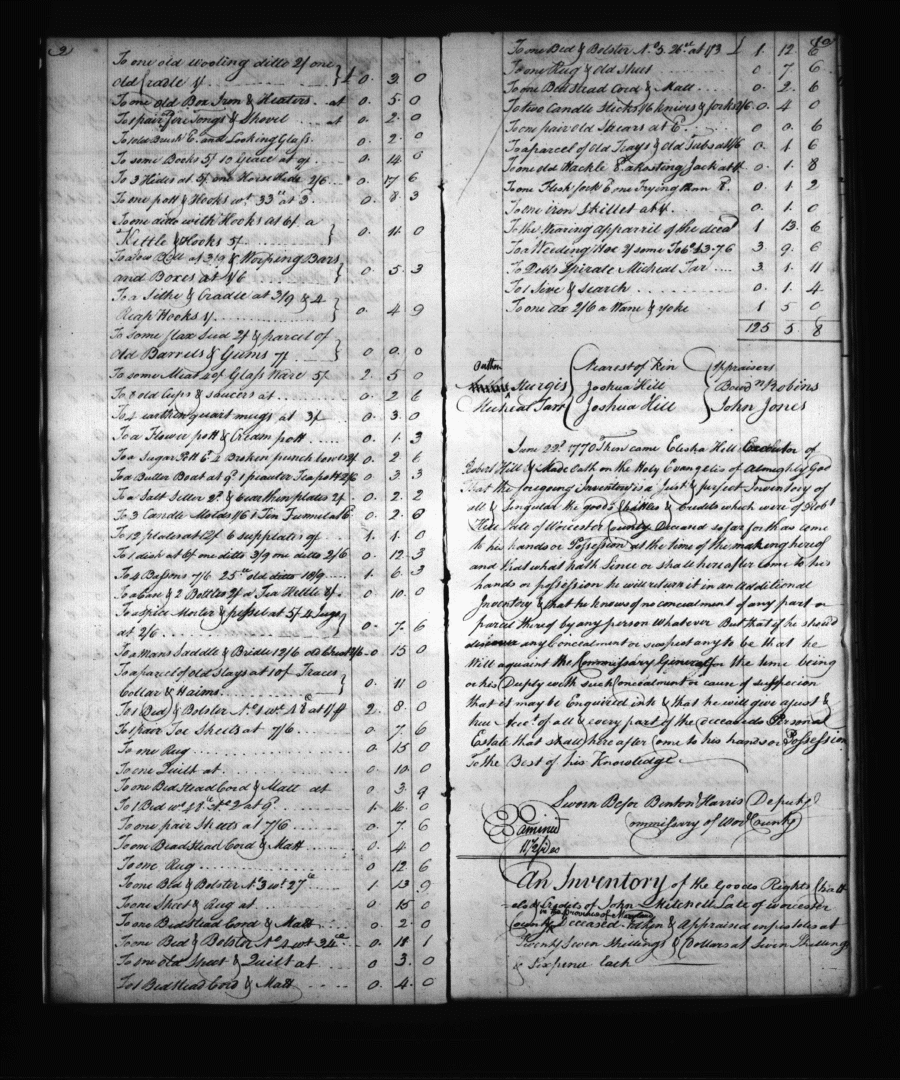 To one old wooling ditto 2/ one
old Cradle 1/ . . . } £ 0. 3. 0
To one old Box Iron & Heaters . . at 0. 5. 0
To 1 pair fire Tongs & Shovel . . at 0. 2. 0
To old and Looking Glass . 0. 2. 0
To some Books 5/ 10 Geace at 9/ . . 0. 14. 0
To 3 Hides at 5/ one Horse Hide 2/6 . . 0. 17. 6
To one pott & Hooks wt. 33 at 3 . 0. 8. 3
To one ditto with Hooks at 6/ a
Kettle & Hooks 5/ } 0. 11. 0
To a Bell at 3/9 & Worping Bars
and Boxes at 1/6 } 0. 5. 3
To a Sithe & Cradle at 3/9 & 4
Reap Hooks 1/ } 0. 4. 9
To some flax Seed 2/ & parcel of
Old Barrels & Gums 7/ } 0. 9. 0
To some Meat 40/ Glass Ware 5/ 2. 5. 0
To 8 old Cups & saucers at 0. 2. 6
To 4 earthen quart mugs at 3/ 0. 3. 0
To a Flower pott & Cream pott 0. 1. 3
To a Sugar Pott 6d 2 Broken punch bowls 2/ 0. 2. 6
To a Butter Boat at 9d 1 pewter Teapott 2/6 0. 3. 3
To a Salt Seller 2d & 6 earthen plates 2/ 0. 2. 2
To 3 Candle Molds 1/6 & Tin Funnel at 0. 2. 8
To 12 plates at 12/ 6 supplates 9/ 1. 1. 0
To 1 dish at 6/ one ditto 3/9 one ditto 2/6 0. 12. 3
To 4 Bassons 7/6 25 old ditto 18/9 1. 6. 3
To a Case & 2 Bottles 2/ a Tea Kettle 8/ 0. 10. 0
To a Spice Morter & pessel at 5/ 4 Jugs
at 2/6 } 0. 7. 6
To a Mans Saddle & Bridle 12/6 2/6 0. 15. 0
To a parcel of old Slays at 10/ Traces
Collar & Haims } 0. 11. 0
To 1 Bed & Bolster No. 1 wt. 48 at 1/ 2. 8. 0
To 1 pair Toe Sheets at 7/6 0. 7. 6
To one Rug 0. 15. 0
To one Quilt at 0. 10. 0
To one Bed Stead Cord & Matt at 0. 3. 9
To 1 Bed wt. 48 No. 2 at 9 1. 16. 0
To one pair Sheets at 7/6 0. 7. 6
To one Bead Stead Cord & Matt 0. 4. 0
To one Rug 0. 12. 6
To one Bed & Bolster No. 3 wt. 27 1. 13. 9
To one Sheet & Rug at 0. 15. 0
To one Bedstead Cord & Matt 0. 2. 0
To one Bed & Bolster No. 4 wt. 24 0. 18. 1
To one old Sheet & Quilt at 0. 3. 0
To 1 Bed Stead Cord & Matt 0. 4. 0
To one Bed & Bolster No. 5 26 at 1/3 £ 1. 12. 6
To one Rug & old Sheet 0. 7. 6
To one Bed Stead Cord & Matt 0. 2. 6
To two Candle Sticks 1/6 knives & forks 2/6 0. 4. 0
To one pair old Shears at 6 0. 0. 6
To a parcel of old Trays & old Tubs at 1/6 0. 1. 6
To one old Hackle 8d a Rosting Jack at 1/ 0. 1. 8
To one Flesh fork 6 one Frying than 8 0. 1. 2
To one iron Skillet at 1/ 0. 1. 0
To the Waring apparril of the decd 1 13. 6
To a Weeding Hoe 2/ some Tobo. £3.7.6 3. 9. 6
To Debts Spirate Micheal Tar 3. 1. 11
To 1 Sive & search 0. 1. 4
To one ax 2/6 a Wane & yoke 1 5 0
125 5. 8
Outten
Sturgis
Micheal Tarr
Nearest of Kin
Joshua Hill
Joshua Hill
Appraisers
Robins
John Jones
June 22d. 1770 Then came Elisha Hill Executor of
Robert Hill & Made Oath on the Holy Evangelis of Almighty God
that the foregoing Inventory is a Just & perfect Inventory of
all & Singular the goods Chattles & Credits which were of Robt
Hill late of Worcester County Deceased so far forth as come
to his hands or Possession at the time of the making hereof
and that what hath Since or shall hereafter come to his
hands or possession he will return it in an additional
Inventory & that he knows of no concealment of any part or
parcel thereof by any person Whatever But that if he should
discover any Concealment or suspect any to be that he
Will aquaint the Commissary General for the time being
or his Deputy with such Concealment or cause of suspecion
that it may be Enquired into & that he will give a just &
true Acct. of all & every part of the deceaseds Personal
Estate that shall hereafter Come to his hands or Possession
To the Best of his Knowledge
Sworn Befor Benton Harris Deputy
Commissary of Wor. County
amined
An Inventory of the Goods Rights Chatt
els & Credits of John Mitchell Late of Worcester
in the Province of Maryland
County Deceased Taken & Appraised in pistoles at
Twenty Seven Shillings & Dollars at Seven Shillings
& Sixpence Each